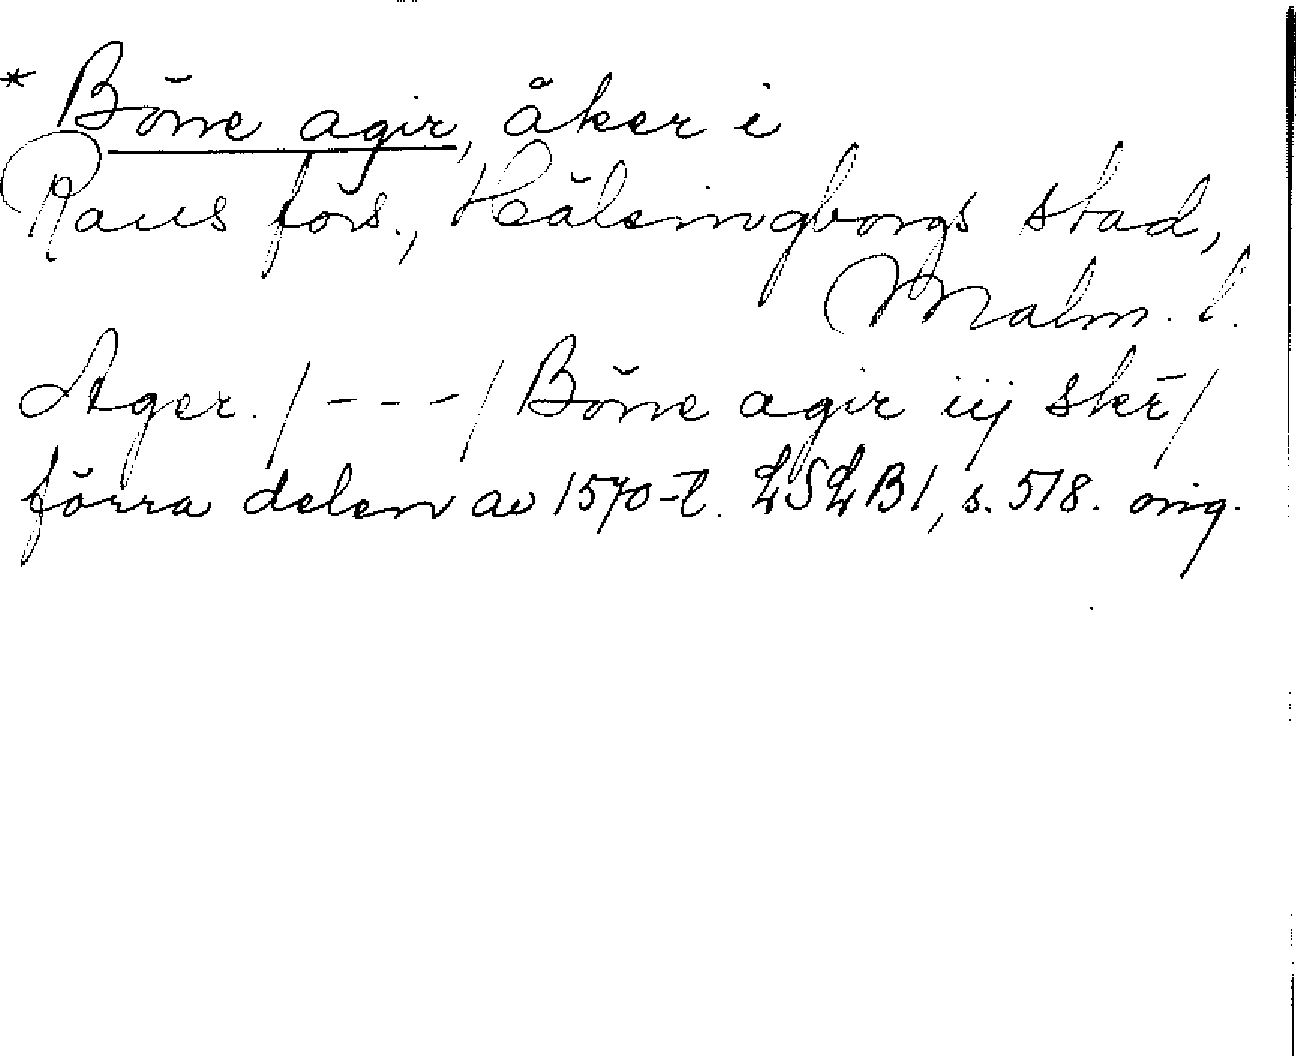 * Börre agir, åker i
Raus förs., Hälsingborgs stad,
Malm. l.
Ager. / - - - / Börre agir iij skr̄ /
förra delen av 1570-t. LSLB1, s. 518. orig.